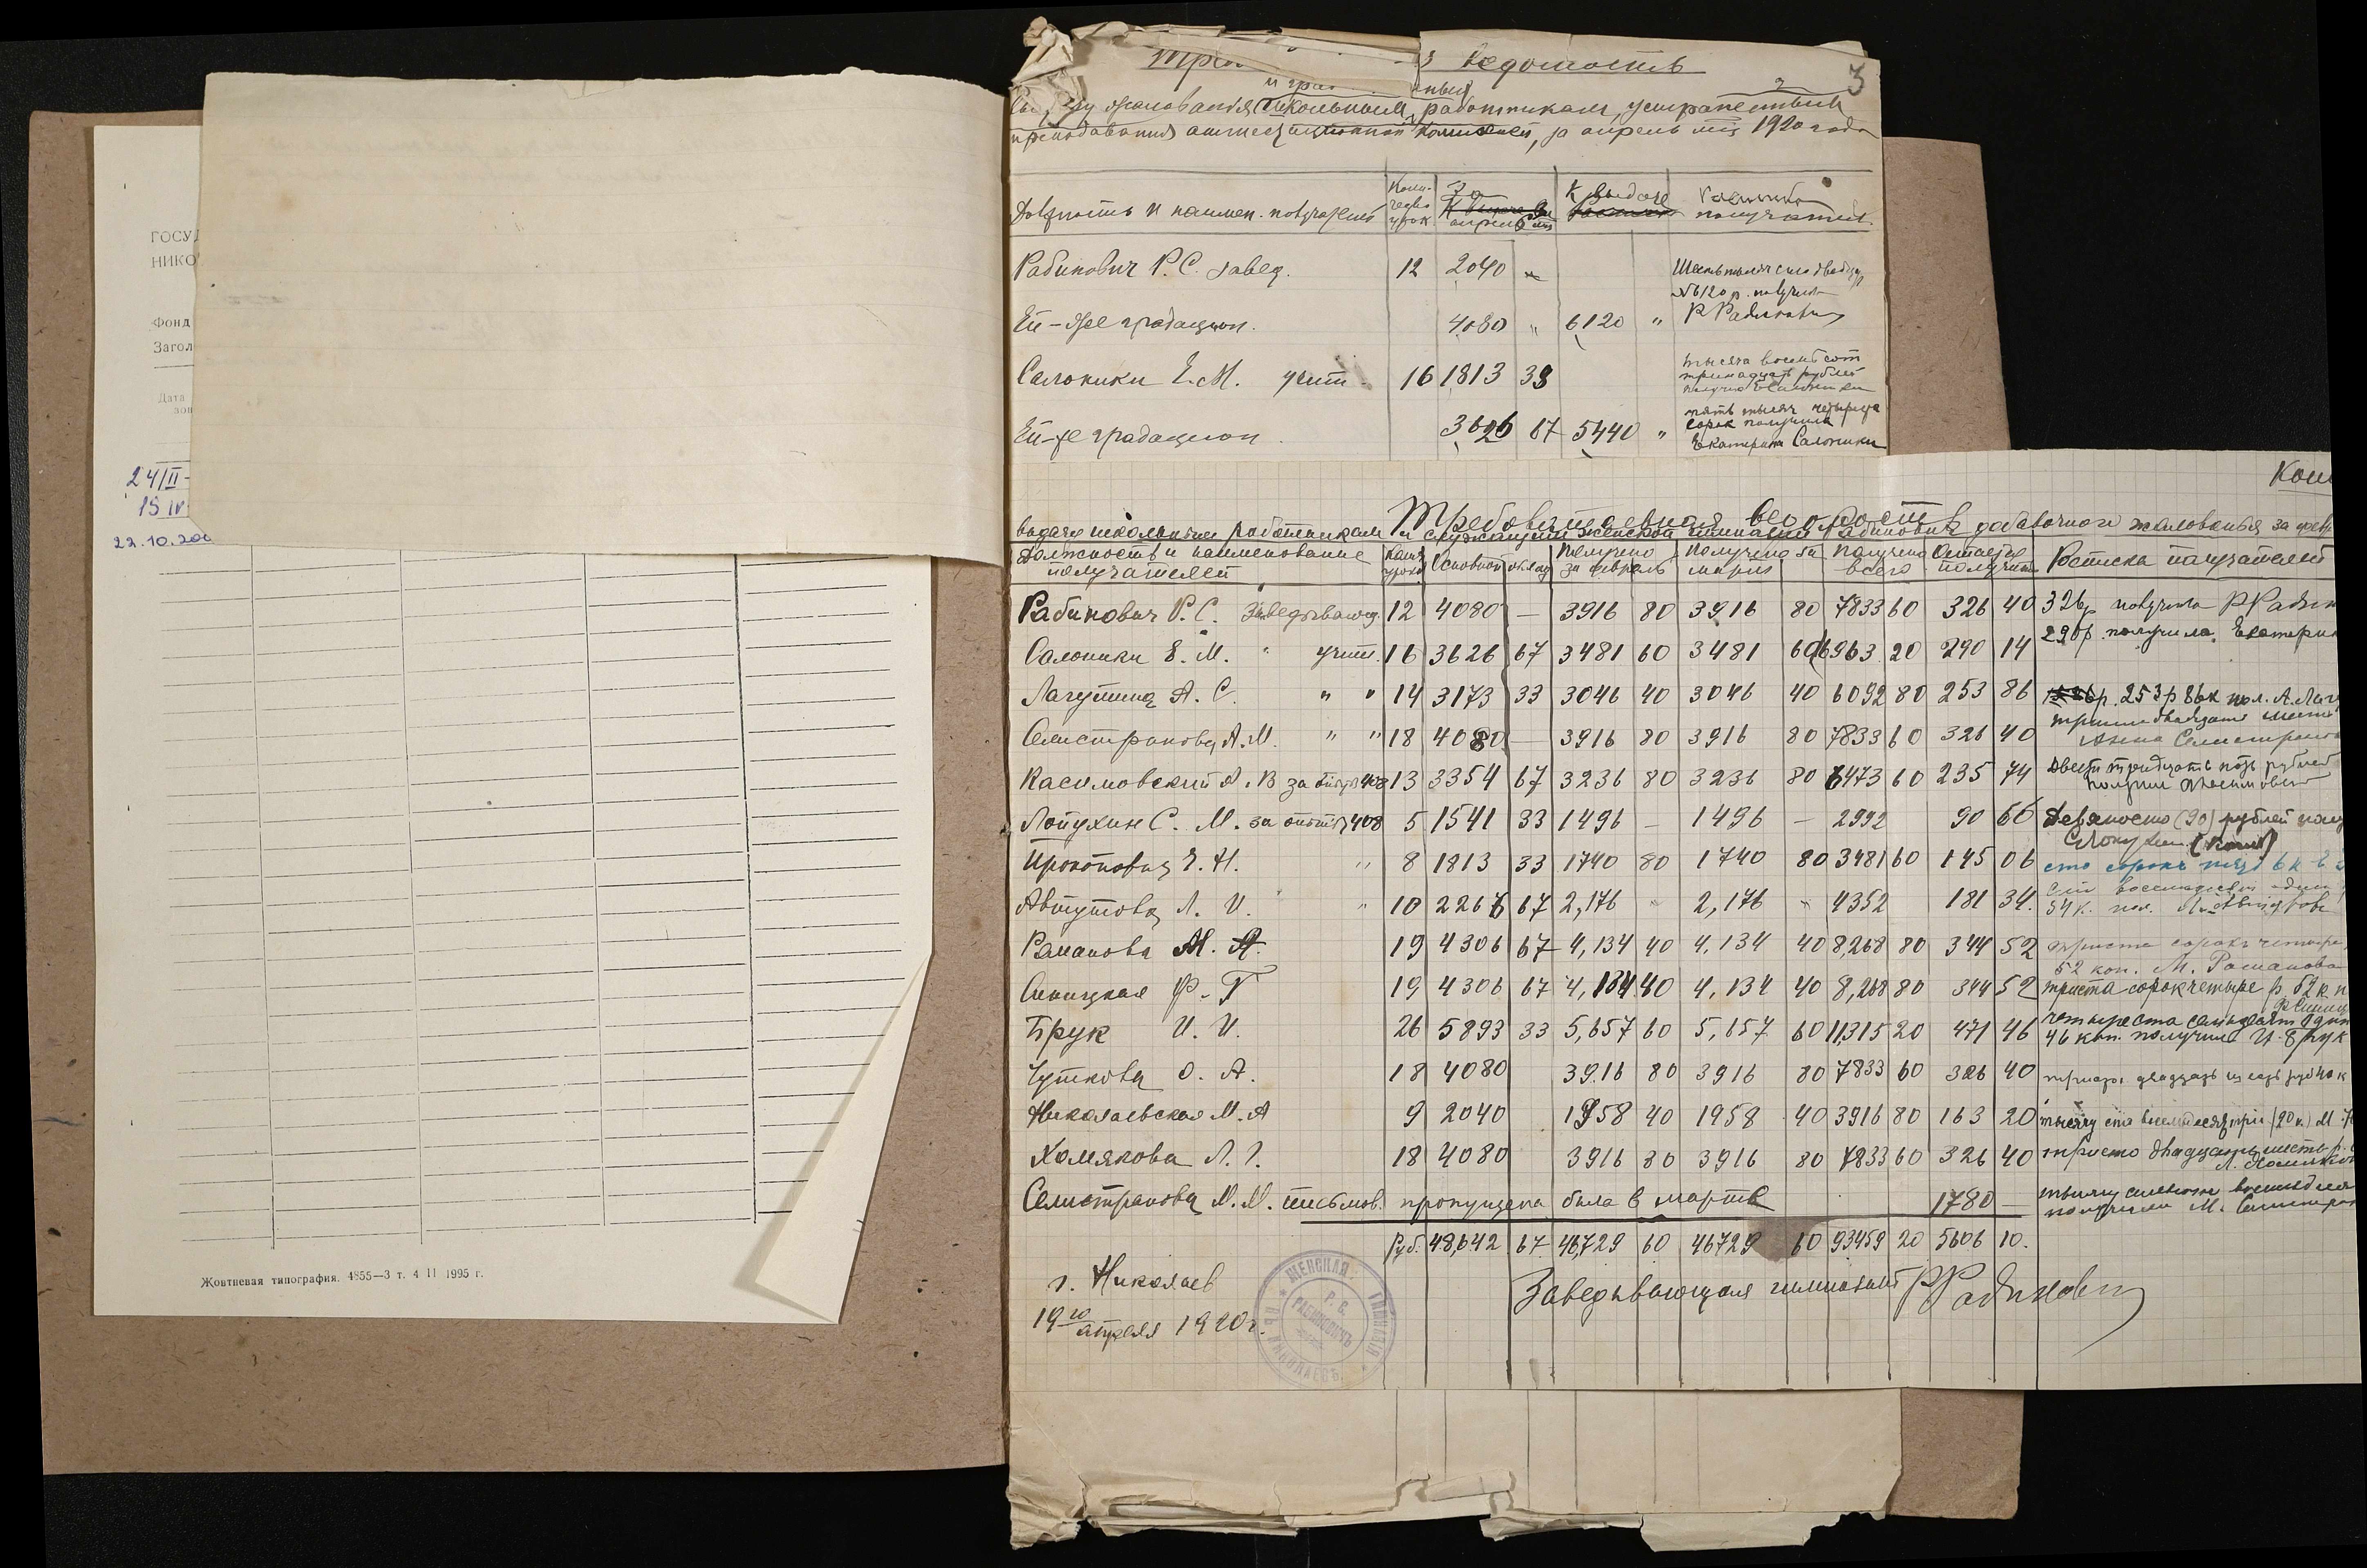 ГОСУД
НИКО
Фонд
Загол
Дата
24/II-
15 IV
22.10.200
Жовтневая типография. 4855—3 т. 4 II 1995 г.
3
ведомость
жалованья школьным работникам, утратившим
преподавания аттестационной комиссией, за апрель мц 1920 года
Должность и наимен. получателей
Коли-чество урок.
За апрель мц
К выдаче
Расписка получателей
Рабинович Р. С. завед. 12 2040 "
Шесть тысяч сто двадцать
№ 6120 р. получила
Ей-же градацион. 4080 " 6120 " Р Рабинович
Салоники Е. М. учит. 16 1813 33
тысяча восемьсот
тринадцать рублей
получила Е Салоники
Ей-же градацион. 3626 67 5440 "
пять тысяч четыреста
сорок получила
Екатерина Салоники
Коп
Требовательная ведомость
выдачи школьным работникам и служащим женской гимназии Рабинович добавочного жалованья за февр
Должность и наименование получателей
Колич. уроков
Основной оклад
Получено за февраль
Получено за март
Получено всего
Остается получить
Росписка получателей
Рабинович Р. С. Заведывающ. 12 4080 — 3916 80 3916 80 7833 60 326 40 326 р получила Р Рабин
Салоники Е. М. " учит. 16 3626 67 3481 60 3481 60 6963 20 290 14 290 р. получила. Екатерин
Лагутина А. С. " " 14 3173 33 3046 40 3046 40 6092 80 253 86 253 р 86 к пол. А. Лагу
Селистранова А. М. " " 18 4080 — 3916 80 3916 80 7833 60 326 40 триста двадцать шесть
Анна Селистранов
Касимовский А. В за 408 13 3354 67 3236 80 3236 80 6473 60 235 74 Двести тридцать пять рублей
получил Касимовский
Лопухин С. М. за 408 5 1541 33 1496 — 1496 — 2992 90 66 Девяносто (90) рублей полу
СЛопухин
Прокопович Е. Н. " 8 1813 33 1740 80 1740 80 3481 60 145 06 сто сорок пять 6 к
Автутова Л. И. " 10 2266 67 2,176 " 2,176 " 4352 181 34. Сто восемьдесят один
34 к. пол. Л. Автутова
Романова М. А. 19 4306 67 4,134 40 4,134 40 8,268 80 344 52 триста сорок четыре
52 коп. М. Романова
Синицкая Ф. Г 19 4306 67 4,134 40 4,134 40 8,268 80 344 52 триста сорок четыре р 52 к п
Ф Синиц
Брук И. И. 26 5893 33 5,657 60 5,657 60 11,315 20 471 46 четыреста семьдесят один
46 коп. получил И. Брук
Чуткова О. А. 18 4080 3916 80 3916 80 7833 60 326 40 триста двадцать шесть руб 40 к
Николаевская М. А 9 2040 1958 40 1958 40 3916 80 163 20 (20 к.) М
Хомякова Л. Г. 18 4080 3916 80 3916 80 7833 60 326 40 триста двадцать шесть р.
Л. Хомяков
Селистранова М. М. письмов. пропущена была в марте 1780 — тысячу семьсот восемьдеся
получила М. Селистран
Руб. 48,642 67 46,729 60 46729 60 93459 20 5606 10.
г. Николаев
19го апреля 1920 г.
Заведывающая гимназией РРабинович
ЖЕНСКАЯ ГИМНАЗІЯ
Р. С. РАБИНОВИЧЪ
НИКОЛАЕВЪ